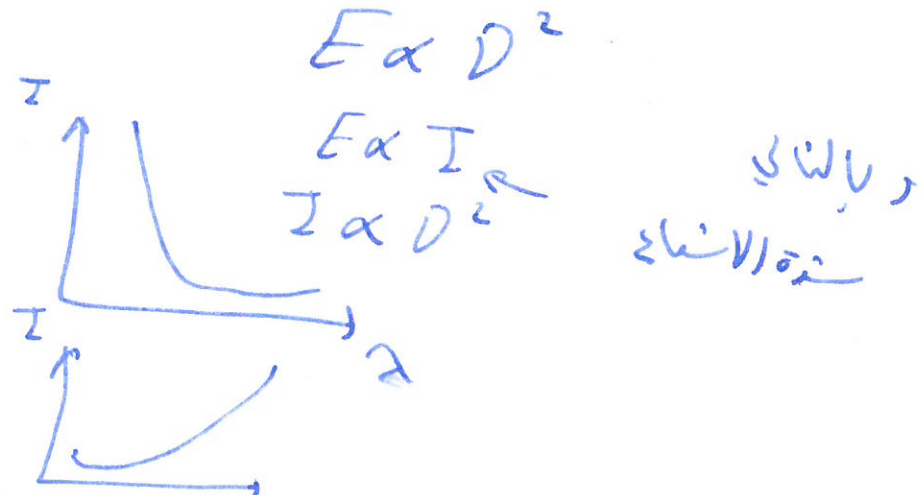 E ∝ D²
I
E ∝ I
I ∝ D²
وبالتالي
شدة الاشعاع
λ
I